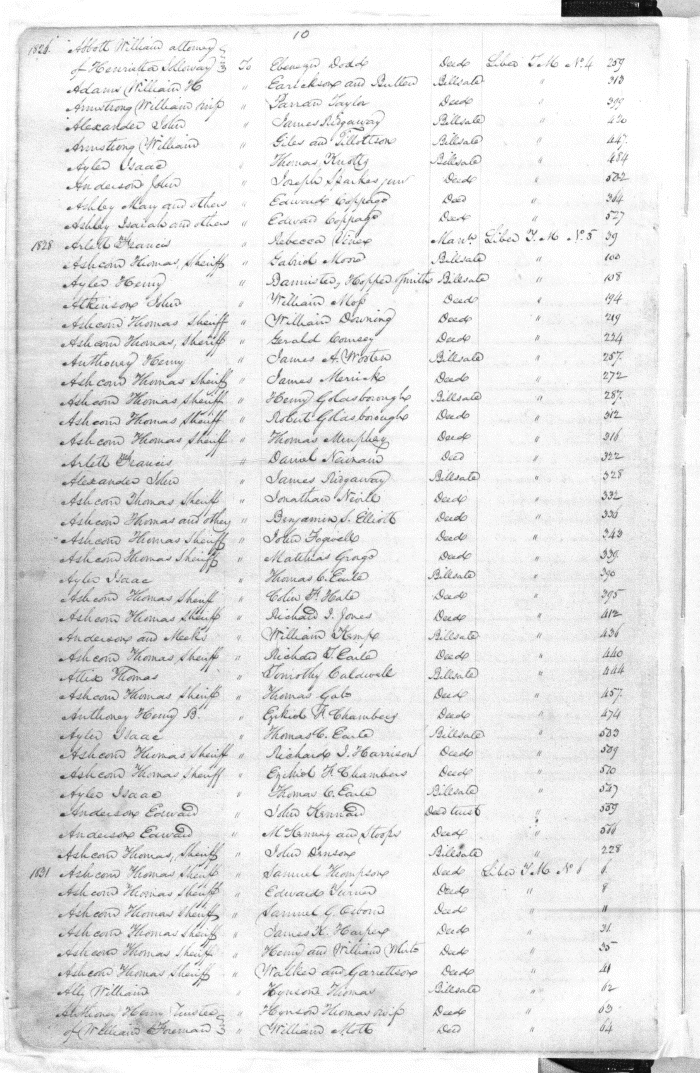 10
1824 Abbott William attorney
of Henrietta Holloway To Ebenezer Dodd Deed Liber T M No. 4 259
Adams William H " Earickson and Button Billsale " 313
Armstrong William & wife " Farran Taylor Deed " 399
Alexander John " James Ridgaway Billsale " 430
Armstrong William " Giles and Tillottson Billsale " 447
Ayler Isaac " Thomas Billsale " 484
Anderson John " Joseph Sparkes junr Deed " 502
Ashley Mary and others " Edward Coppage Deed " 364
Ashley Isaiah and others " Edward Coppage Deed " 527
1828 Arlett Francis " Rebecca Manu. Liber T. M No. 5 39
Ashcom Thomas, Sheriff " Gabriel Moore Billsale " 100
Ayler Henry " Bannister, Hopper Smith Billsale " 108
Atkinson John " William Moss Deed " 194
Ashcom Thomas Sheriff " William Downing Deed " 219
Ashcom Thomas, Sheriff " Gerald Coursey Deed " 224
Anthoney Henry " James A. Wooten Billsale " 257
Ashcom Thomas Sheriff " James Merrick Deed " 272
Ashcom Thomas Sheriff " Henry Goldsborough Billsale " 287
Ashcom Thomas Sheriff " Robert Goldsborough Deed " 312
Ashcom Thomas Sheriff " Thomas Murphey Deed " 316
Arlett Francis " Daniel Newnam Deed " 322
Alexander John " James Ridgaway Billsale " 328
Ashcom Thomas Sheriff " Jonathan Nevile Deed " 332
Ashcom Thomas and others " Benjamin S. Elliott Deed " 336
Ashcom Thomas Sheriff " John Fogwell Deed " 343
Ashcom Thomas Sheriff " Matthias Grags Deed " 339
Ayler Isaac " Thomas C. Earle Billsale " 390
Ashcom Thomas Sheriff " Colin F. Hale Deed " 395
Ashcom Thomas Sheriff " Richard I. Jones Deed " 412
Anderson and Meeks " William Kemp Billsale " 436
Ashcom Thomas, Sheriff " Richard T. Earle Deed " 440
Allex Thomas " Timothy Caldwell Billsale " 444
Ashcom Thomas Sheriff " Thomas Gale Deed " 457
Anthoney Henry B. " Ezekiel F. Chambers Deed " 474
Ayler Isaac " Thomas C. Earle Billsale " 503
Ashcom Thomas Sheriff " Richard I. Harrison Deed " 509
Ashcom Thomas, Sheriff " Ezekiel F. Chambers Deed " 510
Ayler Isaac " Thomas C. Earle Billsale " 547
Anderson Edward " John Kennard Deed trust " 559
Anderson Edward " McKenney and Stoops Deed " 566
Ashcom Thomas, Sheriff " John Denson Billsale " 228
1831 Ashcom Thomas Sheriff " Samuel Thompson Deed Liber T M No 6 6
Ashcom Thomas Sheriff " Edward Turner Deed " 8
Ashcom Thomas Sheriff " Samuel G. Osborn Deed " 11
Ashcom Thomas Sheriff " James K. Harper Deed " 31
Ashcom Thomas Sheriff " Henry and William White Deed " 35
Ashcom Thomas Sheriff " Walker and Garrettson Deed " 41
Ally William " Hynson Thomas Billsale " 62
Anthoney Henry Trustee " Hynson Thomas & wife Deed " 63
of William Foreman " William Mott Deed " 64